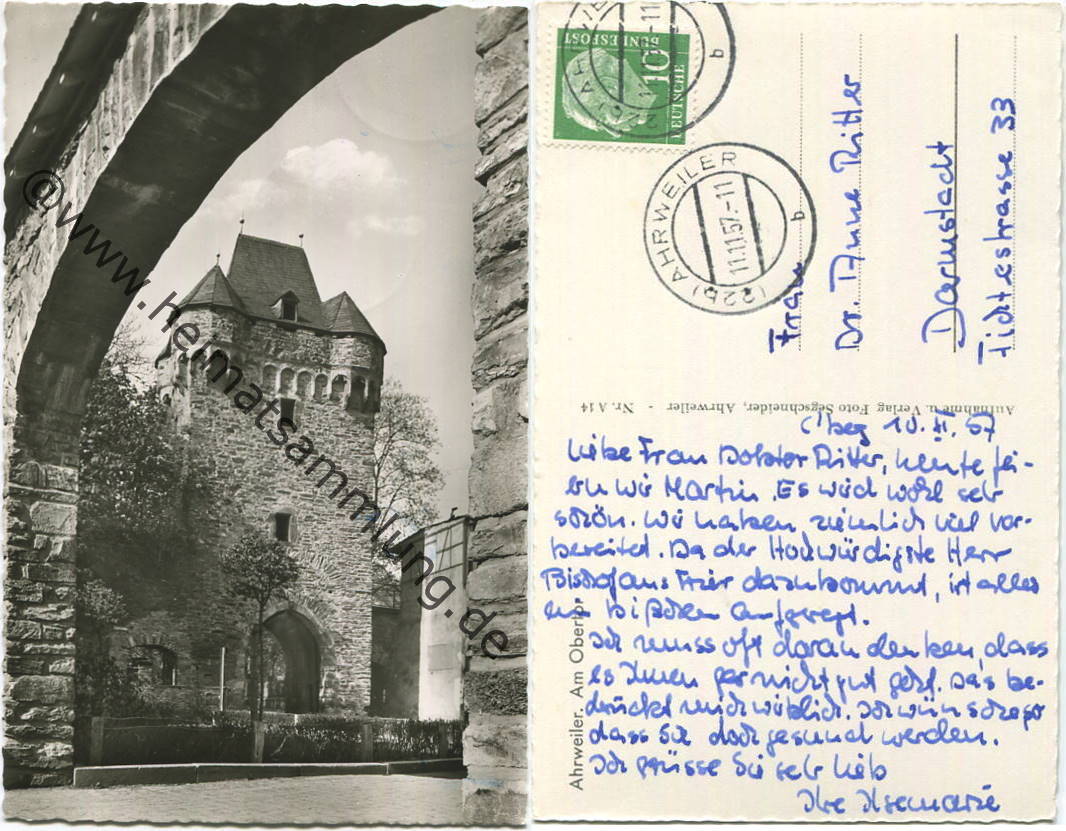 ©www.heimatsammlung.de
DEUTSCHE
BUNDESPOST
10
(22b) AHRWEILER
11.11.57.-11
b
(22b) AHRWEILER
11.11.57.-11
b
Frau
Dr. Anne Ritter
Darmstadt
Fichtestrasse 33
Aufnahme u. Verlag Foto Segschneider, Ahrweiler - Nr. A 14
Ahrweiler. Am Obertor
C'berg 10. XI. 57
Liebe Frau Doktor Ritter, heute fei-
ern wir Martin. Es wird wohl sehr
schön. Wir haben ziemlich viel vor-
bereitet. Da der Hochwürdigste Herr
Bischof aus Trier dazukommt, ist alles
ein bißchen aufgeregt.
Ich muss oft daran denken, dass
es Ihnen gar nicht gut geht. Das be-
drückt mich wirklich. Ich wünsche so
dass Sie doch gesund werden.
Ich grüsse Sie sehr lieb
Ihre Ilsemarie